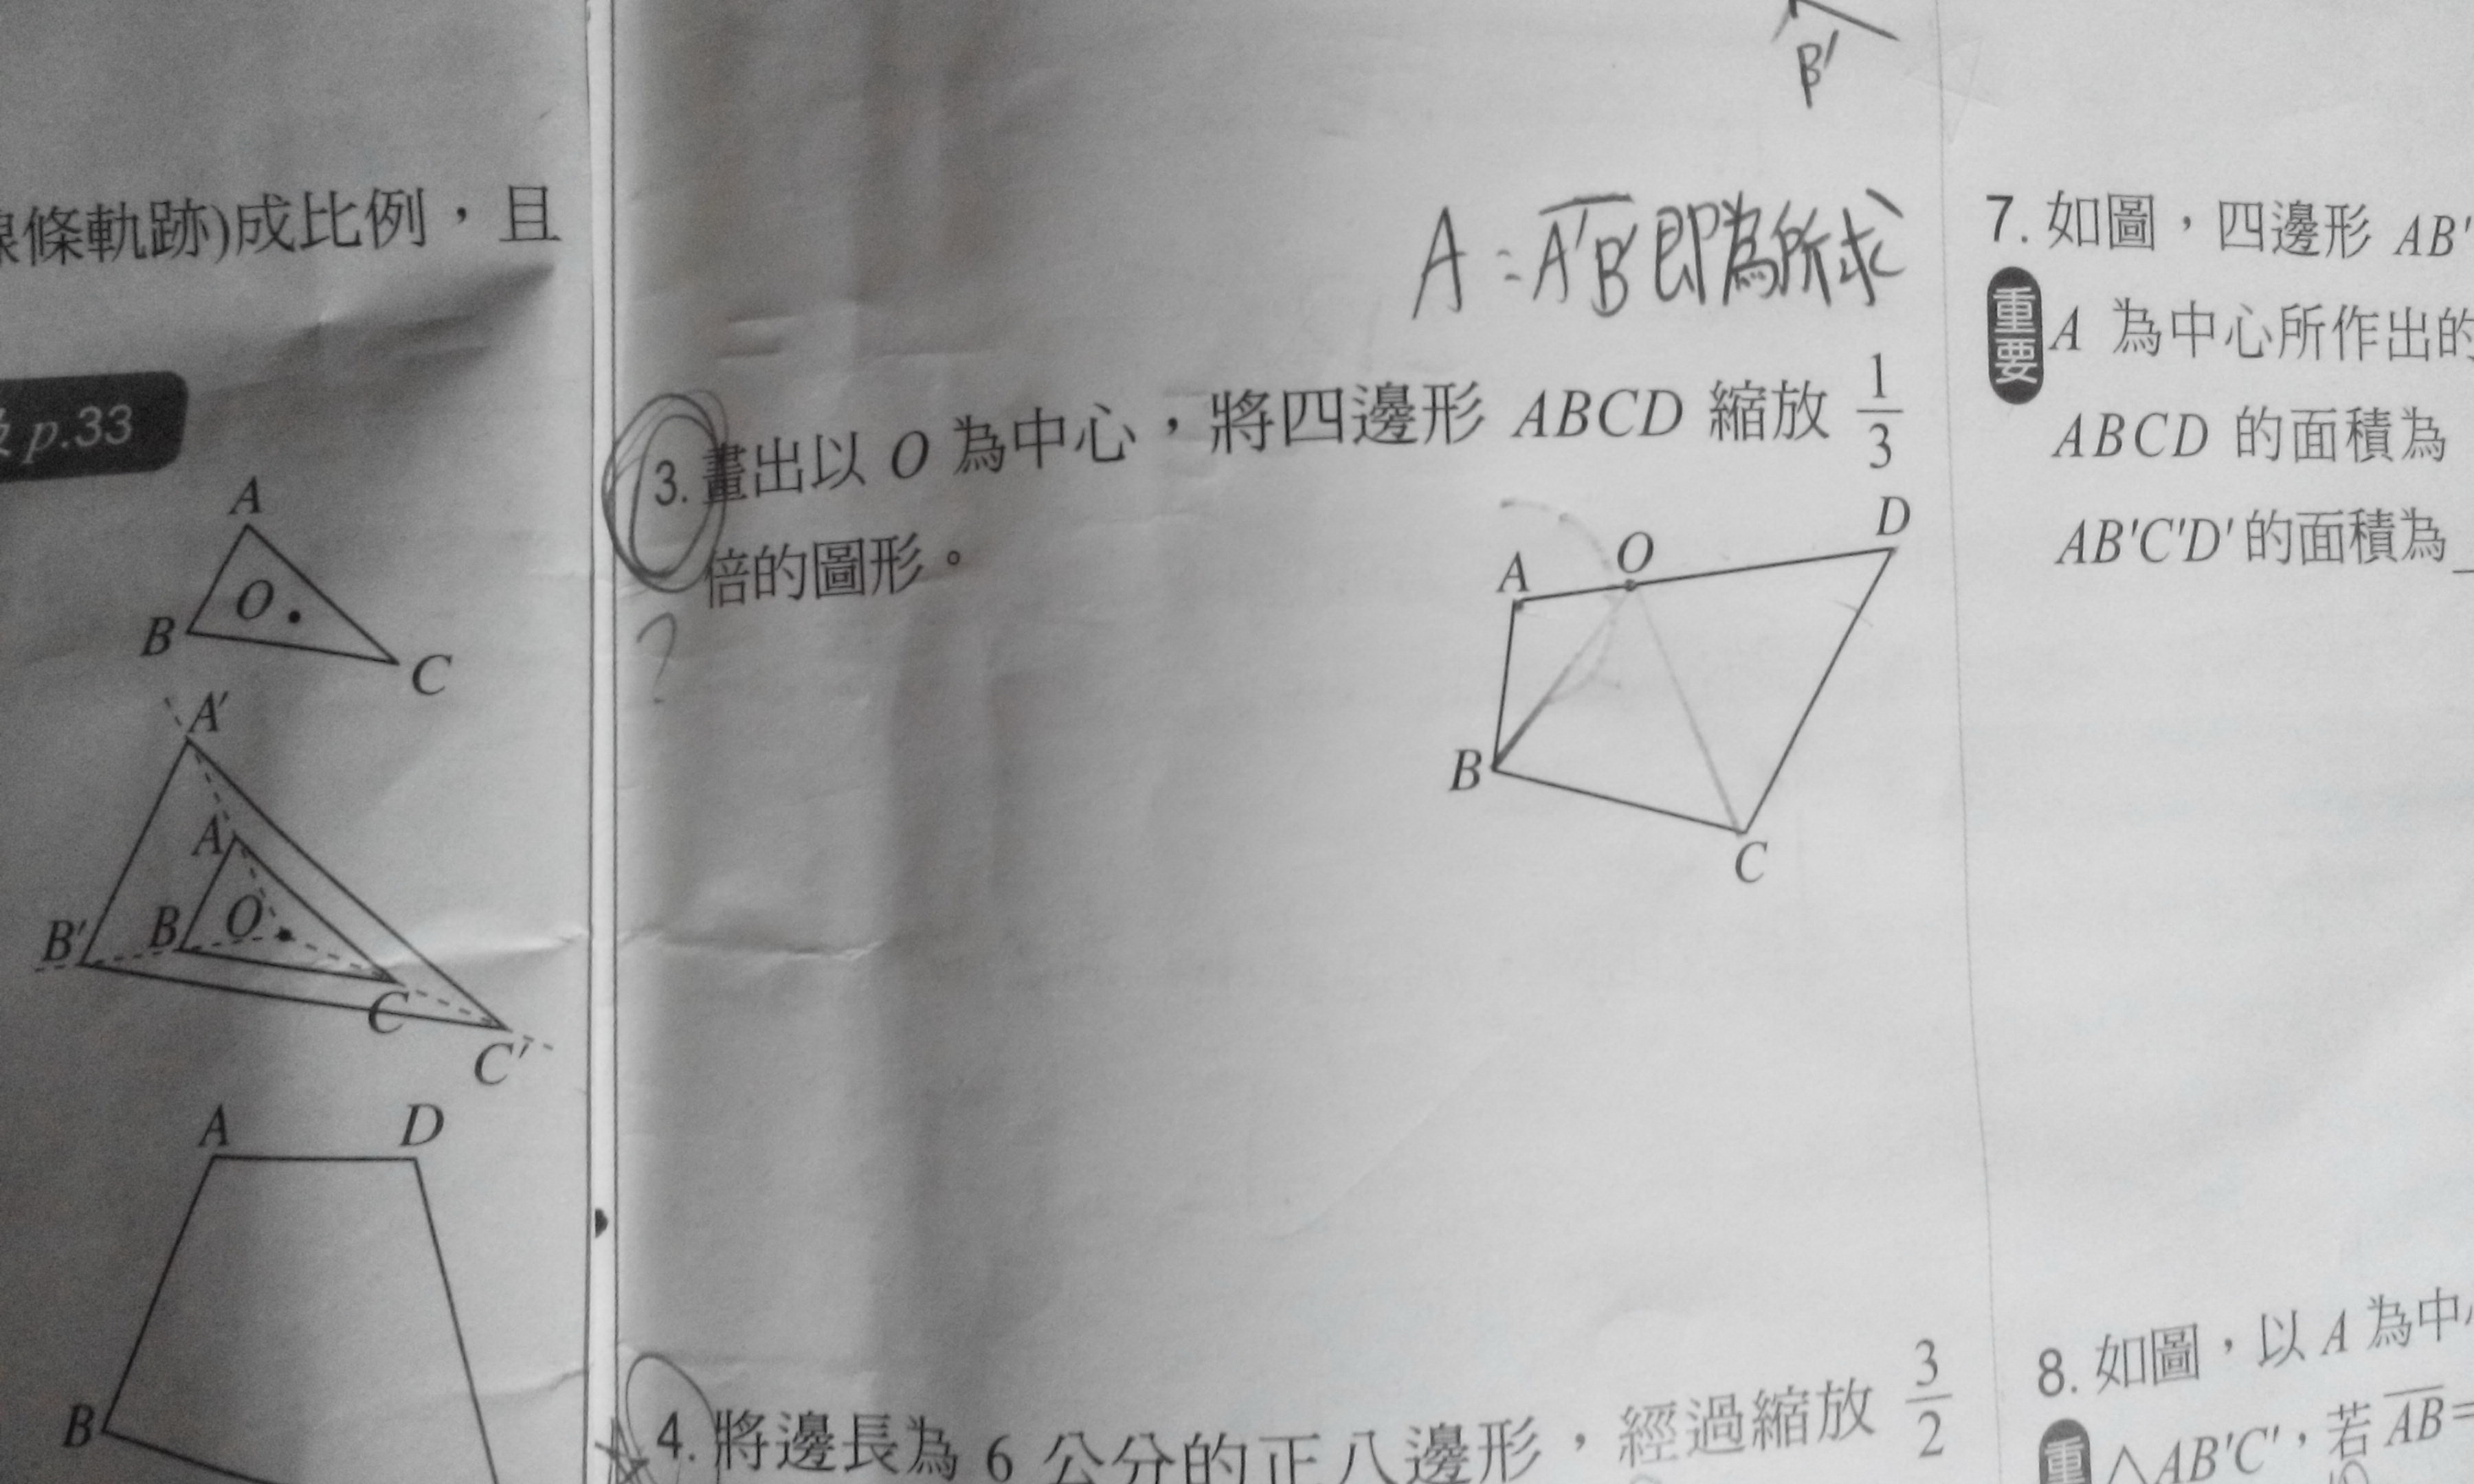 線條軌跡)成比例，且
p.33
A
B
O
C
A'
A
B'
B
O
C
C'
A
D
B
B'
A = A'B' 即為所求
3. 畫出以 O 為中心，將四邊形 ABCD 縮放 1/3
倍的圖形。
?
A
O
D
B
C
4. 將邊長為 6 公分的正八邊形，經過縮放 3/2
7. 如圖，四邊形 AB'
重要
A 為中心所作出的
ABCD 的面積為
AB'C'D' 的面積為_
8. 如圖，以 A 為中
重
△AB'C'，若 AB=